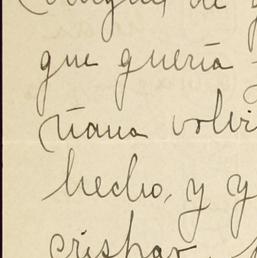 de
que quería
tiana volvi
hecho, y y
crispar,